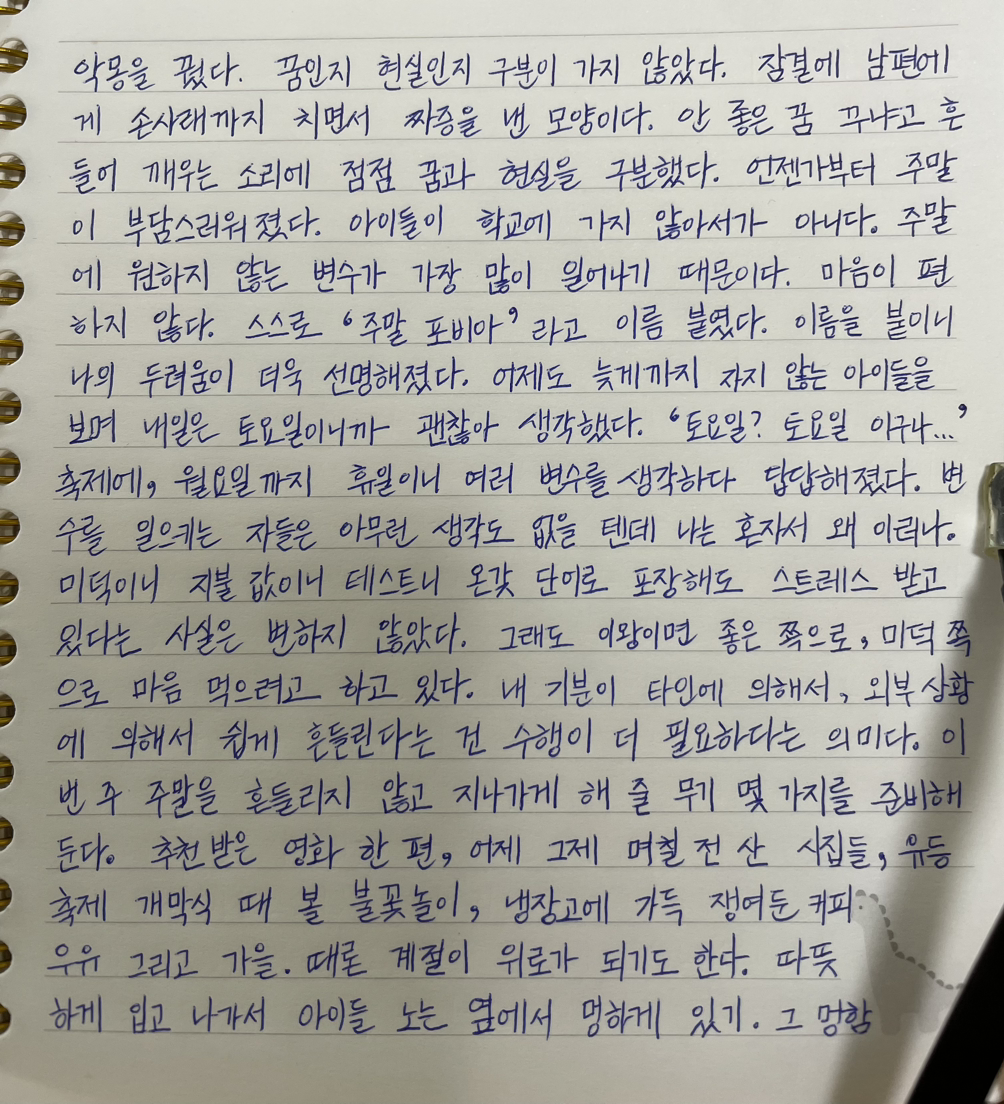 악몽을 꿨다. 꿈인지 현실인지 구분이 가지 않았다. 잠결에 남편에
게 손사래까지 치면서 짜증을 낸 모양이다. 안 좋은 꿈 꾸냐고 흔
들어 깨우는 소리에 점점 꿈과 현실을 구분했다. 언젠가부터 주말
이 부담스러워졌다. 아이들이 학교에 가지 않아서가 아니다. 주말
에 원하지 않는 변수가 가장 많이 일어나기 때문이다. 마음이 편
하지 않다. 스스로 ‘주말 포비아’라고 이름 붙였다. 이름을 붙이니
나의 두려움이 더욱 선명해졌다. 어제도 늦게까지 자지 않는 아이들을
보며 내일은 토요일이니까 괜찮아 생각했다. ‘토요일? 토요일 이구나...’
축제에, 월요일까지 휴일이니 여러 변수를 생각하다 답답해졌다. 변
수를 일으키는 자들은 아무런 생각도 없을 텐데 나는 혼자서 왜 이러나.
미덕이니 지불 값이니 테스트니 온갖 단어로 포장해도 스트레스 받고
있다는 사실은 변하지 않았다. 그래도 이왕이면 좋은 쪽으로, 미덕 쪽
으로 마음 먹으려고 하고 있다. 내 기분이 타인에 의해서, 외부 상황
에 의해서 쉽게 흔들린다는 건 수행이 더 필요하다는 의미다. 이
번 주 주말을 흔들리지 않고 지나가게 해 줄 무기 몇 가지를 준비해
둔다. 추천 받은 영화 한 편, 어제 그제 며칠 전 산 시집들, 유등
축제 개막식 때 볼 불꽃놀이, 냉장고에 가득 쟁여둔 커피
우유 그리고 가을. 때론 계절이 위로가 되기도 한다. 따뜻
하게 입고 나가서 아이들 노는 옆에서 멍하게 있기. 그 멍함